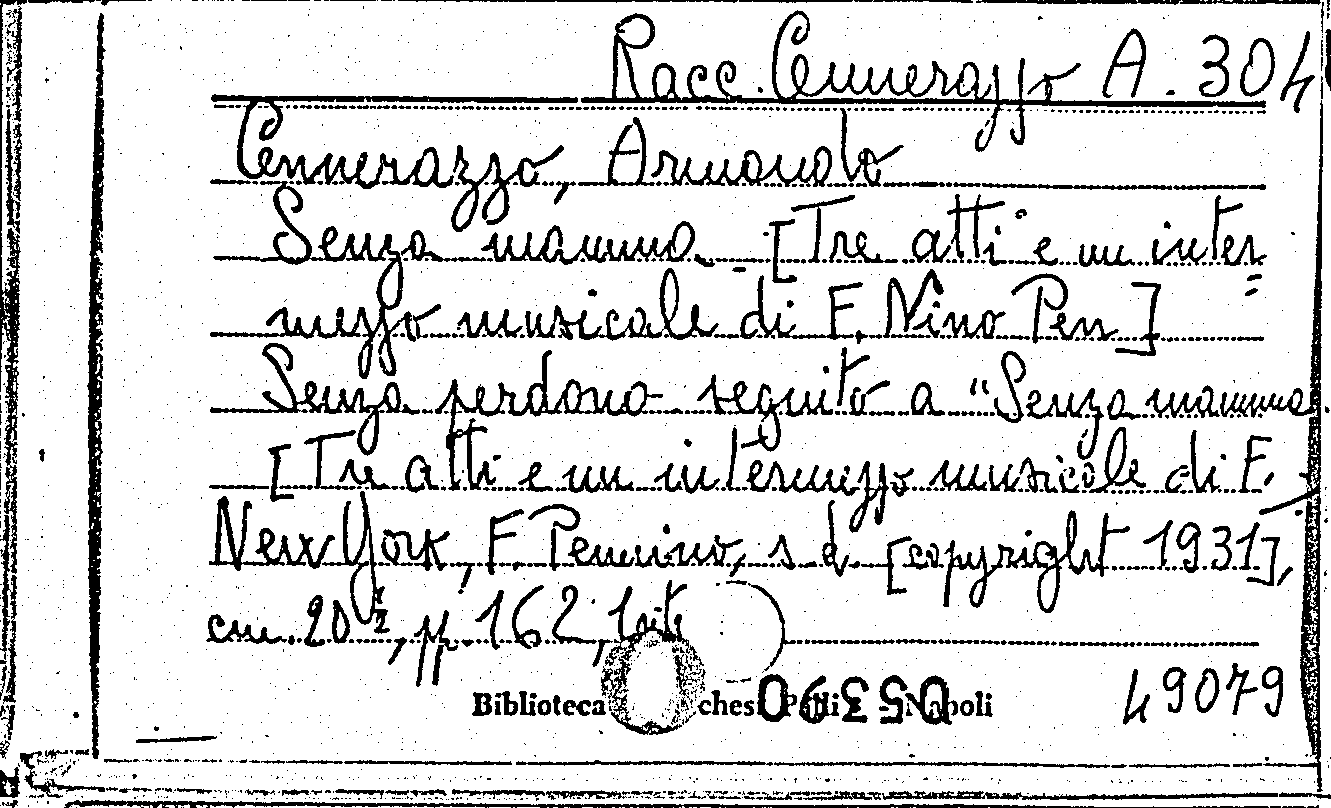 Racc. Cennerazzo A. 304
Cennerazzo, Armando
Senza mamma. - [Tre atti e un inter=
mezzo musicale di F. Nino Pen]
Senza perdono seguito a "Senza mamma
[Tre atti e un intermezzo musicale di F.
New York, F. Pennino, s. d. [copyright 1931],
cm. 20 ½, pp. 162,
Biblioteca chesi Palli - Napoli
05390
49079